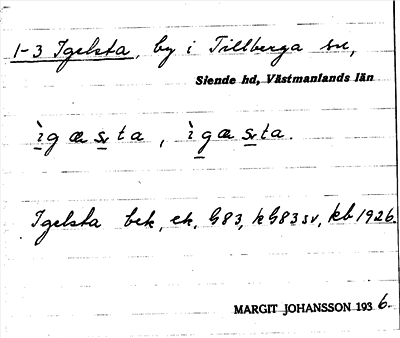 1-3 Igelsta, by i Tillberga sn,
Siende hd, Västmanlands län
ìgæsta, ìgæsta.
Igelsta bek, ek, G83, kG83sv, kb 1926.
MARGIT JOHANSSON 1936.